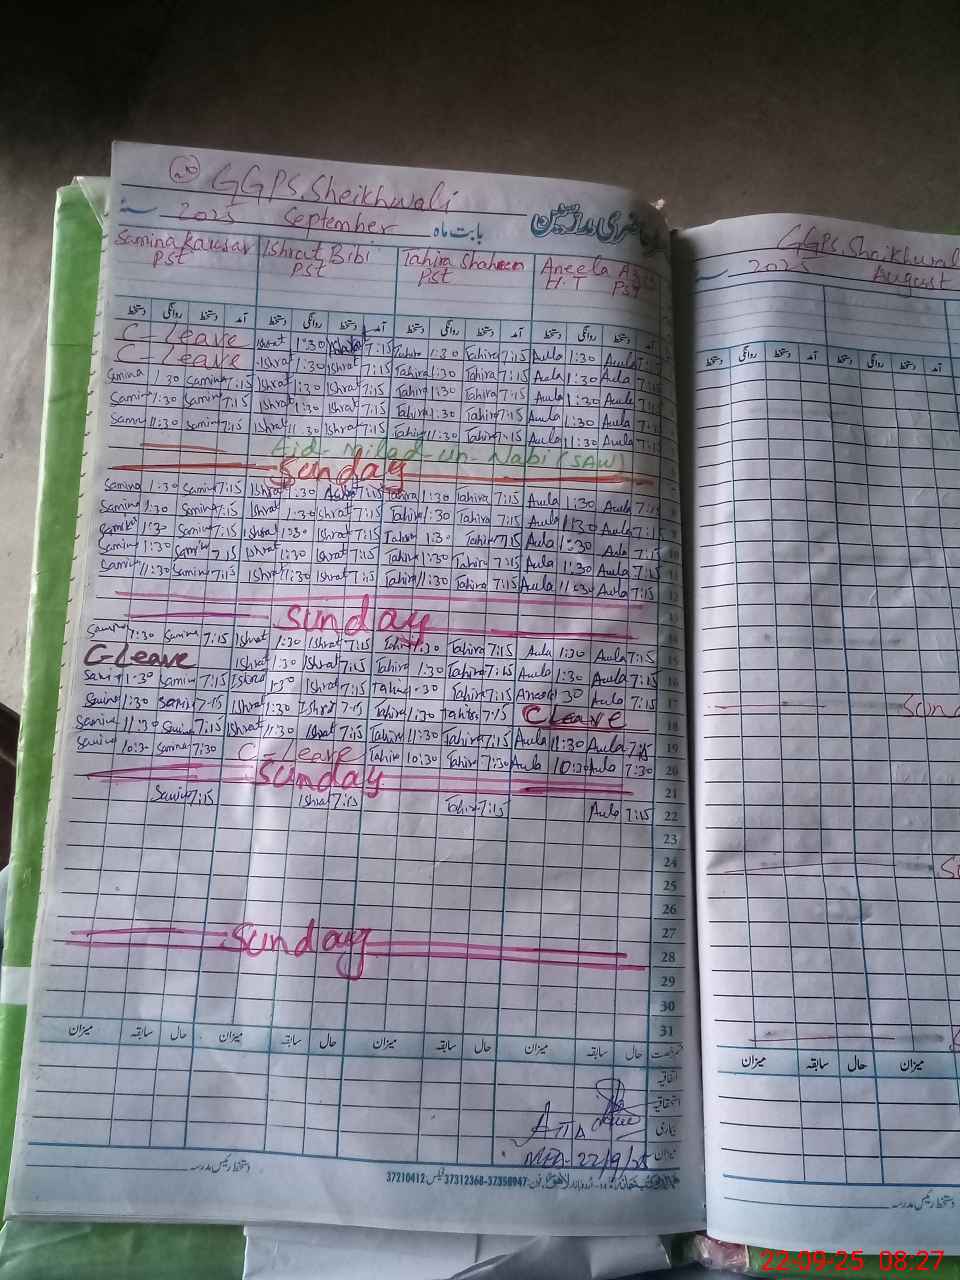 GGPS. Sheikhwali
حاضری مدرسین
2025 September بابت ماہ
Samina Kausar PST Ishrat Bibi PST Tahira Shaheen PST Aneela H.T PST
دستخط روانگی دستخط آمد دستخط روانگی دستخط آمد دستخط روانگی دستخط آمد دستخط روانگی دستخط آمد
C-Leave Ishrat 1:30 7:15 Tahira 1:30 Tahira 7:15 Aula 1:30 Aula 7:15
C-Leave Ishrat 1:30 Ishrat 7:15 Tahira 1:30 Tahira 7:15 Aula 1:30 Aula 7:15
Samina 1:30 Samina 7:15 Ishrat 1:30 Ishrat 7:15 Tahira 1:30 Tahira 7:15 Aula 1:30 Aula 7:15
Samina 1:30 Samina 7:15 Ishrat 1:30 Ishrat 7:15 Tahira 1:30 Tahira 7:15 Aula 1:30 Aula 7:15
Samina 11:30 Samina 7:15 Ishrat 11:30 Ishrat 7:15 Tahira 11:30 Tahira 7:15 Aula 11:30 Aula 7:15
Eid-Milad-un-Nabi (SAW)
Sunday
Samina 1:30 Samina 7:15 Ishrat 1:30 7:15 Tahira 1:30 Tahira 7:15 Aula 1:30 Aula 7:15
Samina 1:30 Samina 7:15 Ishrat 1:30 Ishrat 7:15 Tahira 1:30 Tahira 7:15 Aula 1:30 Aula 7:15
Samina 1:30 Samina 7:15 Ishrat 1:30 Ishrat 7:15 Tahira 1:30 Tahira 7:15 Aula 1:30 Aula 7:15 10
Samina 1:30 Samina 7:15 Ishrat 1:30 Ishrat 7:15 Tahira 1:30 Tahira 7:15 Aula 1:30 Aula 7:15 11
Samina 11:30 Samina 7:15 Ishrat 11:30 Ishrat 7:15 Tahira 11:30 Tahira 7:15 Aula 11:30 Aula 7:15 12
Sunday 14
Samina 1:30 Samina 7:15 Ishrat 1:30 Ishrat 7:15 Tahira 1:30 Tahira 7:15 Aula 1:30 Aula 7:15 15
C-Leave Ishrat 1:30 Ishrat 7:15 Tahira 1:30 Tahira 7:15 Aula 1:30 Aula 7:15 16
Samina 1:30 Samina 7:15 Ishrat 1:30 Ishrat 7:15 Tahira 1:30 Tahira 7:15 1:30 Aula 7:15 17
Samina 1:30 Samina 7:15 Ishrat 1:30 Ishrat 7:15 Tahira 1:30 Tahira 7:15 C Leave 18
Samina 11:30 Samina 7:15 Ishrat 11:30 Ishrat 7:15 Tahira 11:30 Tahira 7:15 Aula 11:30 Aula 7:15 19
Samina 10:30 Samina 7:30 C-Leave Tahira 10:30 Tahira 7:30 Aula 10:30 Aula 7:30 20
Sunday 21
Samina 7:15 Ishrat 7:15 Tahira 7:15 Aula 7:15 22
23
24
25
26
27
Sunday 28
29
30
31
میزان سابقہ حال میزان سابقہ حال میزان سابقہ حال میزان سابقہ حال
اتفاقیہ
استحقاقیہ
بیماری
میزان
MEA-22/9/25
دستخط رئیس مدرسہ
37210412 فیکس 37312368-37358947
GGPS. Shaikhwali
2025 August
دستخط روانگی دستخط آمد دستخط روانگی دستخط آمد
میزان سابقہ حال میزان
دستخط رئیس مدرسہ
22-09-25 08:27